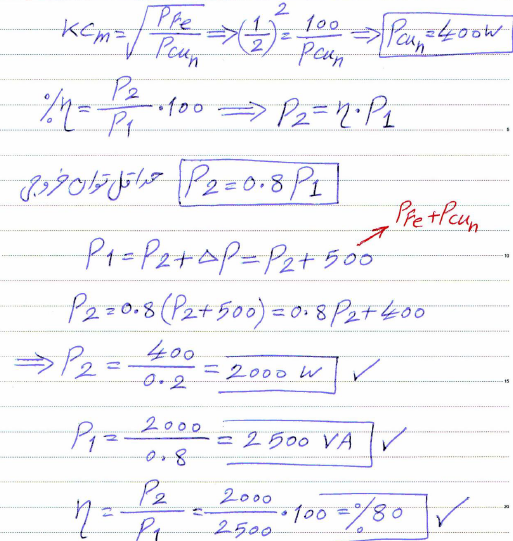 KCm = √(PFe/PCun) ⟹ (1/2)² = 100/PCun ⟹ PCun = 400W
%η = P2/P1 · 100 ⟹ P2 = η · P1
حداقل توان خروجی P2 = 0.8 P1
PFe + PCun
P1 = P2 + ΔP = P2 + 500
P2 = 0.8(P2 + 500) = 0.8P2 + 400
⟹ P2 = 400/0.2 = 2000 W ✓
P1 = 2000/0.8 = 2500 VA ✓
η = P2/P1 = 2000/2500 · 100 = %80 ✓